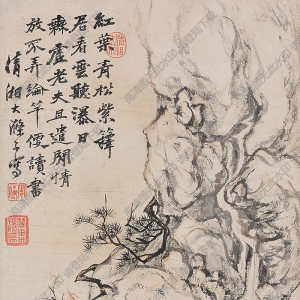 紅葉青松紫籜
居看雲聽瀑日
霖霍老夫且遣閒情
放不弄綸竿便讀書
清湘大滌子寫